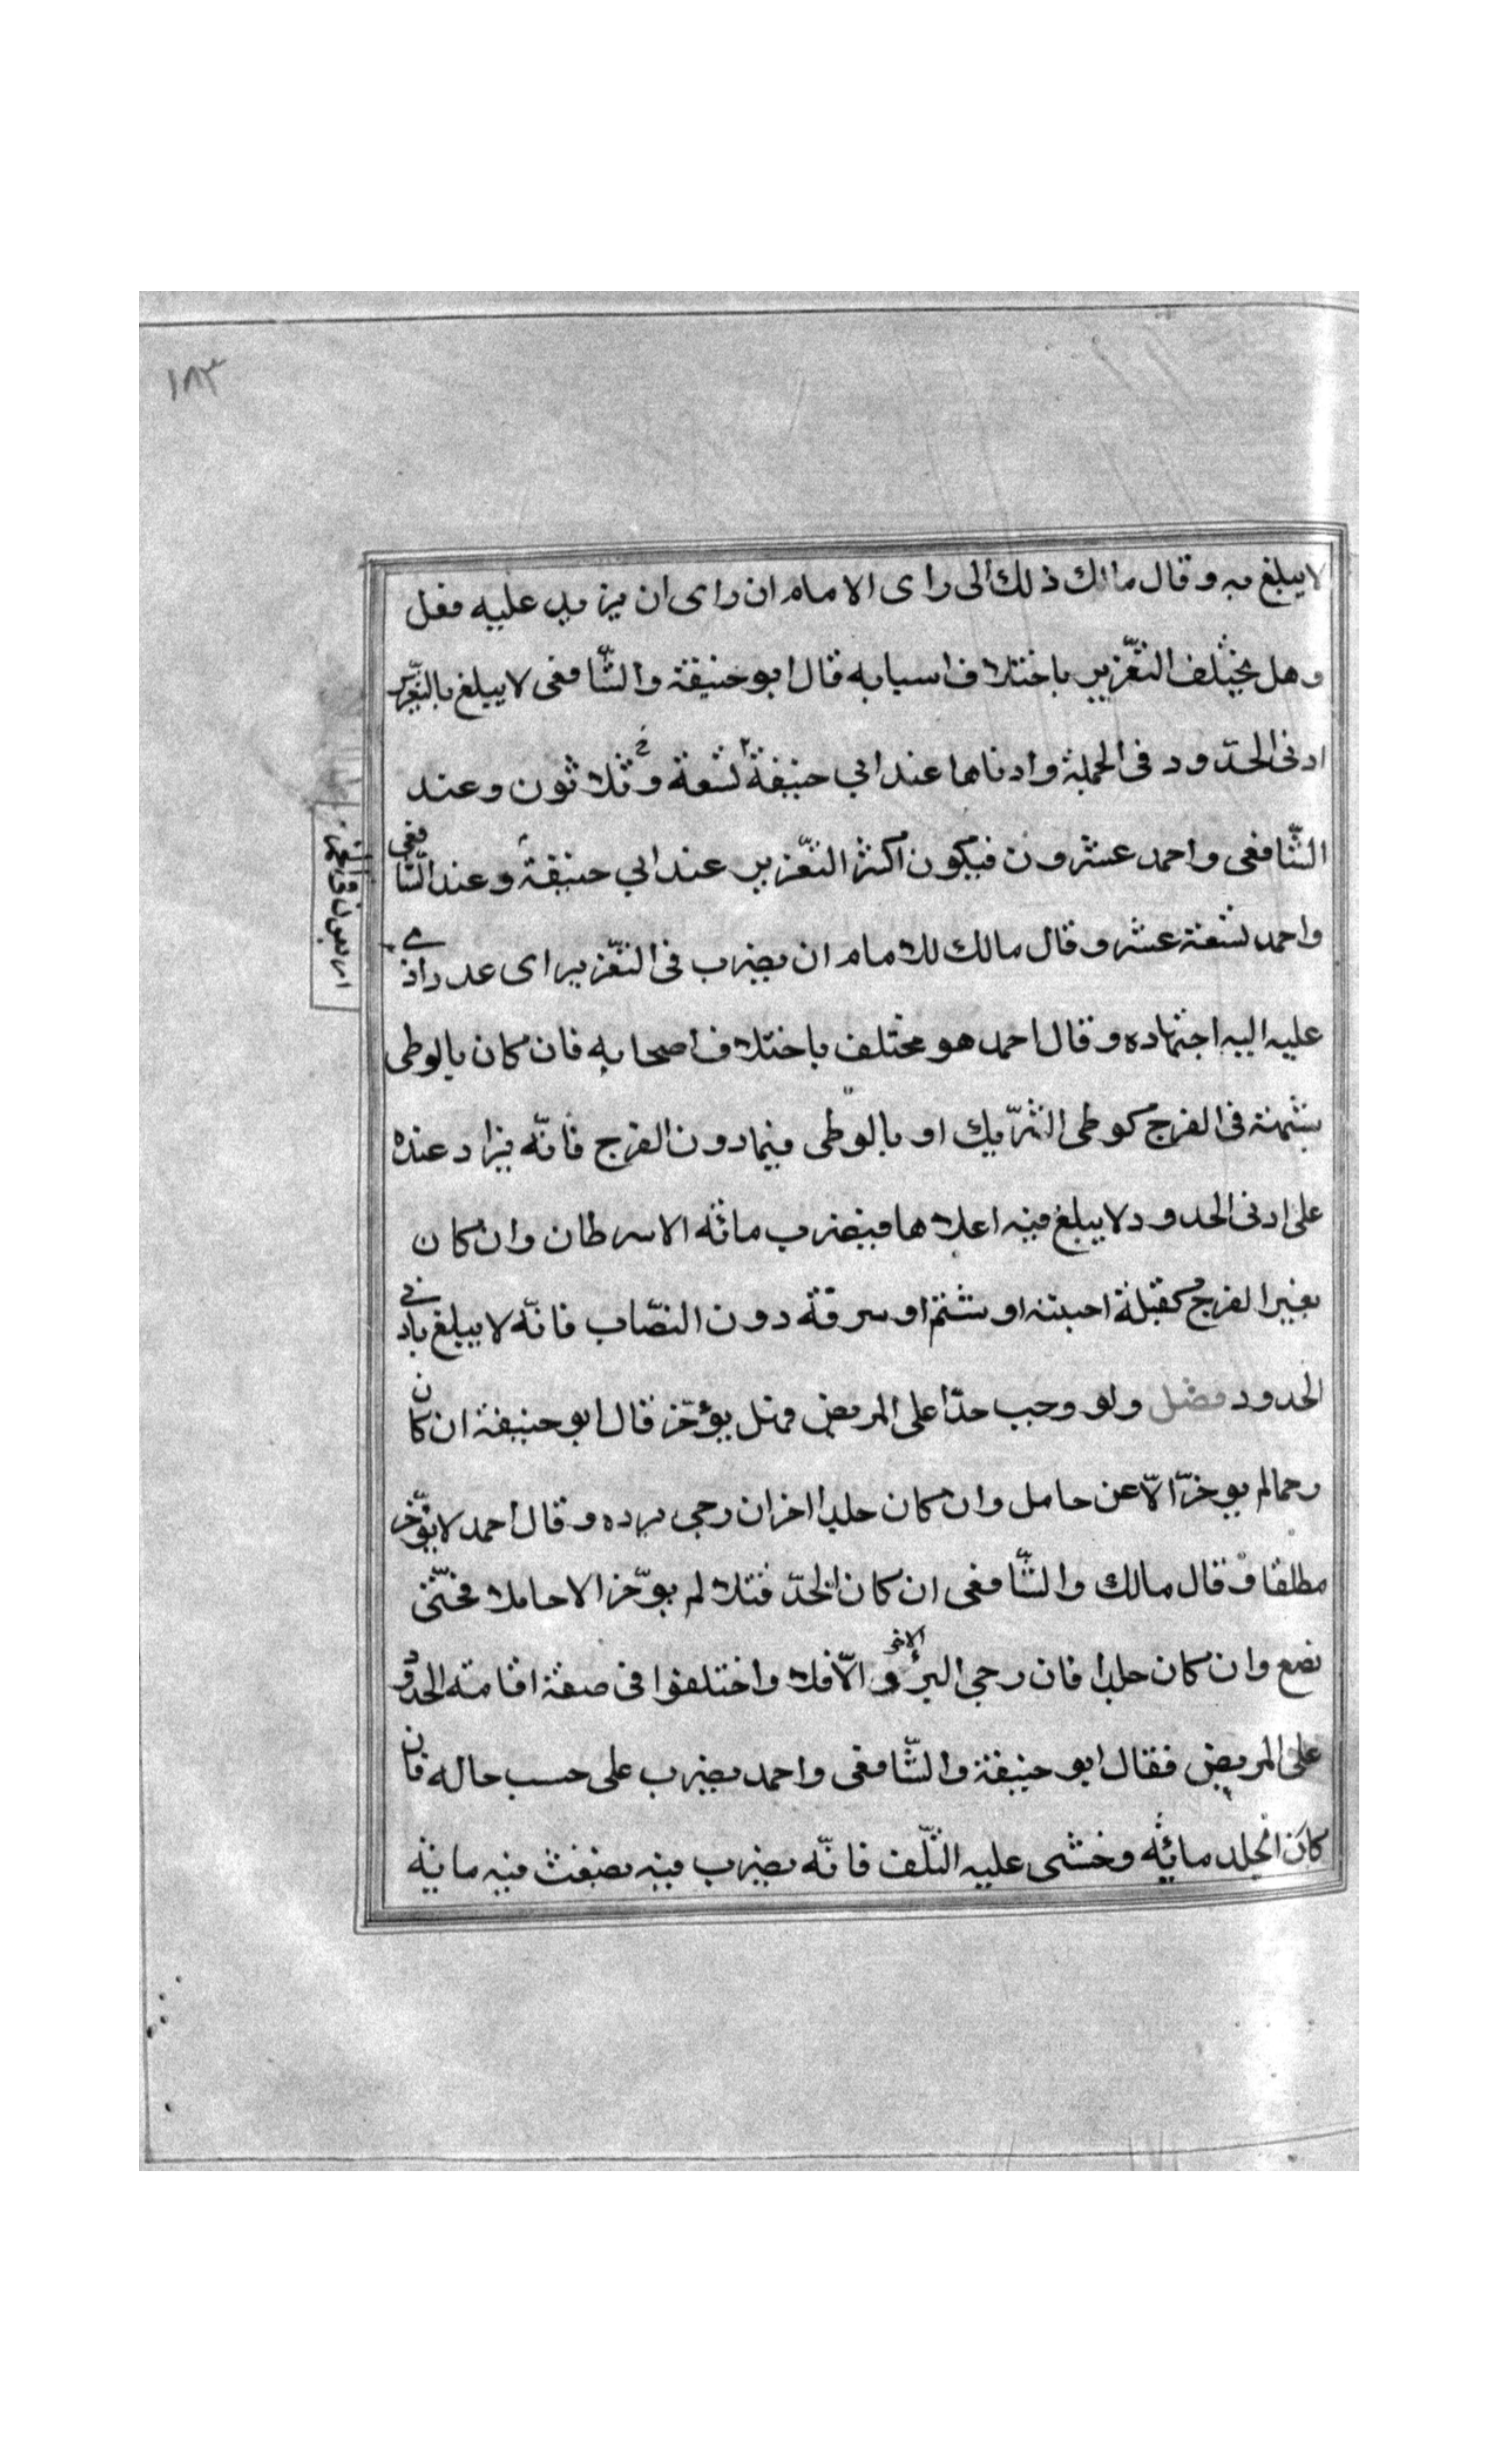 ١٨٣
لا يبلغ به وقال مالك ذلك الى راى الامام ان راى ان يزيد عليه فعل
وهل يختلف التعّزير باختلاف اسبابه قال ابو حنيفة والشّافعى لا يبلغ بالتعّزير
ادنى الحدّود فى الجملة وادناها عند ابي حنيفة تسعة وثلاثون وعند
الشّافعى واحمد عشرون فيكون اكثر التعّزير عند ابي حنيفة وعند الشّافعى
واحمد تسعة عشر وقال مالك للامام ان يضرب فى التعّزير اى عدد ادّى
عليه اليه اجتهاده وقال احمد هو مختلف باختلاف اصحابه فان كان بالوطى
بشبهة فى الفرج كوطى الشّريك او بالوطى فيما دون الفرج فانّه يزاد عنده
على ادنى الحدود لا يبلغ فيه اعلاها فيضرب مائه الا سرطان وان كان
بغير الفرج كقبلة اجبته او شتم او سرقة دون النصّاب فانّه لا يبلغ بادنى
الحدود فضل ولو وجب حدّا على المريض فهل يؤخّر قال ابو حنيفة ان كان
رجما لم يوخرّ الاّ عن حامل وان كان جلدا اخر ان رجى برده وقال احمد لا يؤّخر
مطلقا وقال مالك والشّافعى ان كان الحدّ قتلا لم يوّخر الا حاملا فحتّى
تضع وان كان جلدا فان رجى البرؤ الاخر و الاّ فلا واختلفوا فى صفة اقامته الحدود
على المريض فقال ابو حنيفة والشّافعى واحمد يضرب على حسب حاله فان
كان الجلد مائه وخشى عليه التّلف فانّه يضرب فيه بضغث فيه مائة